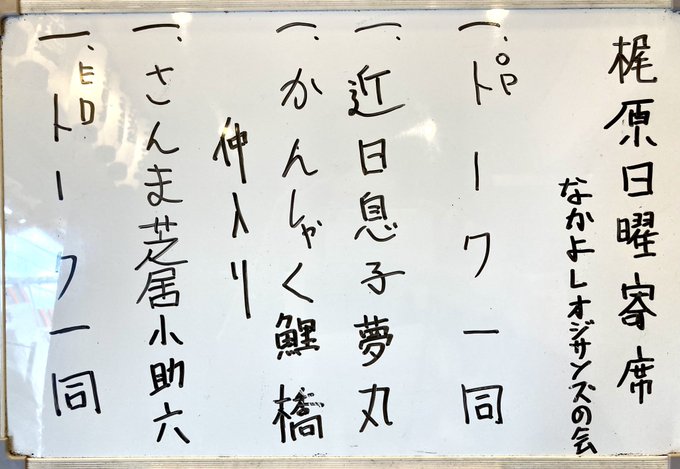 梶原日曜寄席
なかよしオジサンズの会
一、OPトーク 一同
一、近日息子 夢丸
一、かんしゃく 鯉橋
仲入り
一、さんま芝居 小助六
一、EDトーク 一同